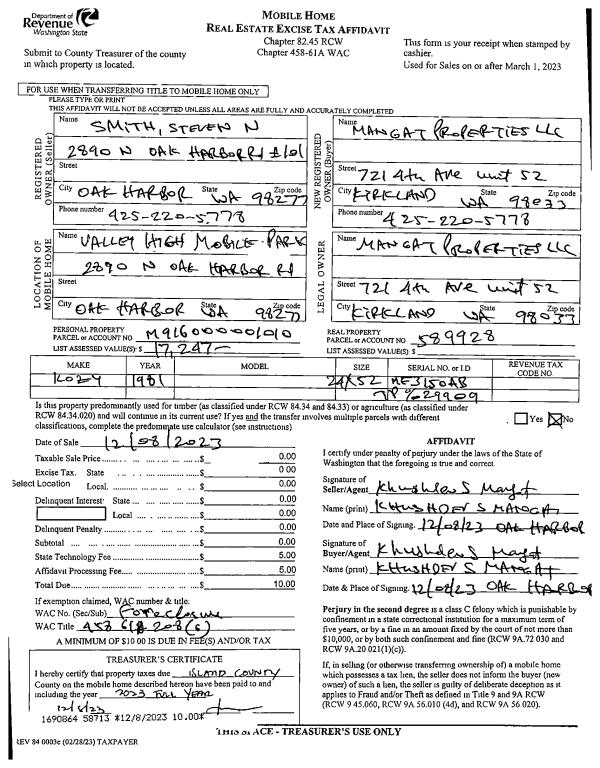 Department of
Revenue
Washington State
Submit to County Treasurer of the county
in which property is located.
MOBILE HOME
REAL ESTATE EXCISE TAX AFFIDAVIT
Chapter 82.45 RCW
Chapter 458-61A WAC
This form is your receipt when stamped by
cashier.
Used for Sales on or after March 1, 2023
FOR USE WHEN TRANSFERRING TITLE TO MOBILE HOME ONLY
PLEASE TYPE OR PRINT
THIS AFFIDAVIT WILL NOT BE ACCEPTED UNLESS ALL AREAS ARE FULLY AND ACCURATELY COMPLETED
REGISTERED OWNER (Seller)
Name SMITH, STEVEN N
2890 N OAK HARBOR Rd #101
Street
City OAK HARBOR State WA Zip code 98277
Phone number 425-220-5778
NEW REGISTERED OWNER (Buyer)
Name MANGAT PROPERTIES LLC
Street 721 4th Ave unit 52
City KIRKLAND State WA Zip code 98033
Phone number 425-220-5778
LOCATION OF MOBILE HOME
Name VALLEY HIGH MOBILE PARK
2890 N OAK HARBOR Rd
Street
City OAK HARBOR State WA Zip code 98277
LEGAL OWNER
Name MANGAT PROPERTIES LLC
Street 721 4th Ave unit 52
City KIRKLAND State WA Zip code 98033
PERSONAL PROPERTY
PARCEL or ACCOUNT NO. M916000001010
LIST ASSESSED VALUE(S) $ 17,247-
REAL PROPERTY
PARCEL or ACCOUNT NO 589928
LIST ASSESSED VALUE(S) $
MAKE YEAR MODEL SIZE SERIAL NO. or I.D. REVENUE TAX CODE NO.
1981 24X52 ME3150AB
29909
Is this property predominantly used for timber (as classified under RCW 84.34 and 84.33) or agriculture (as classified under
RCW 84.34.020) and will continue in its current use? If yes and the transfer involves multiple parcels with different
classifications, complete the predominate use calculator (see instructions)
Yes No
Date of Sale 12/08/2023
Taxable Sale Price $ 0.00
Excise Tax. State $ 0.00
Select Location Local $ 0.00
Delinquent Interest State $ 0.00
Local $ 0.00
Delinquent Penalty $ 0.00
Subtotal $ 0.00
State Technology Fee $ 5.00
Affidavit Processing Fee $ 5.00
Total Due $ 10.00
If exemption claimed, WAC number & title:
WAC No. (Sec/Sub) Foreclosure
WAC Title 458 61A 208(c)
A MINIMUM OF $10 00 IS DUE IN FEE(S) AND/OR TAX
AFFIDAVIT
I certify under penalty of perjury under the laws of the State of
Washington that the foregoing is true and correct
Signature of
Seller/Agent Khushdev S Mangat
Name (print) KHUSHDEV S MANGAT
Date and Place of Signing. 12/08/23 OAK HARBOR
Signature of
Buyer/Agent Khushdev S Mangat
Name (print) KHUSHDEV S MANGAT
Date & Place of Signing. 12/08/23 OAK HARBOR
Perjury in the second degree is a class C felony which is punishable by
confinement in a state correctional institution for a maximum term of
five years, or by a fine in an amount fixed by the court of not more than
$10,000, or by both such confinement and fine (RCW 9A.72 030 and
RCW 9A.20 021(1)(c)).
If, in selling (or otherwise transferring ownership of) a mobile home
which possesses a tax lien, the seller does not inform the buyer (new
owner) of such a lien, the seller is guilty of deliberate deception as it
applies to Fraud and/or Theft as defined in Title 9 and 9A RCW
(RCW 9 45.060, RCW 9A 56.010 (4d), and RCW 9A 56 020).
TREASURER'S CERTIFICATE
I hereby certify that property taxes due ISLAND COUNTY
County on the mobile home described hereon have been paid to and
including the year 2023 FULL YEAR
12/8/23
1690864 58713 *12/8/2023 10.00*
THIS SPACE - TREASURER'S USE ONLY
REV 84 0003e (02/28/23) TAXPAYER